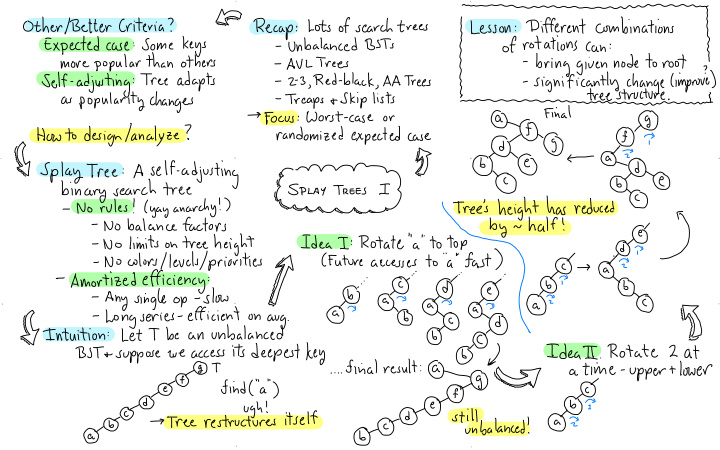 SPLAY TREES I
Recap: Lots of search trees
- Unbalanced BSTs
- AVL Trees
- 2-3, Red-black, AA Trees
- Treaps + Skip lists
→ Focus: Worst-case or
randomized expected case
Other/Better Criteria?
Expected case: Some keys
more popular than others
Self-adjusting: Tree adapts
as popularity changes
How to design/analyze?
Splay Tree: A self-adjusting
binary search tree
- No rules! (yay anarchy!)
- No balance factors
- No limits on tree height
- No colors/levels/priorities
- Amortized efficiency:
- Any single op - slow
- Long series - efficient on avg.
Intuition: Let T be an unbalanced
BST + suppose we access its deepest key
g T
f
e
d
c
b
a
find("a")
ugh!
→ Tree restructures itself
Idea I: Rotate "a" to top
(Future accesses to "a" fast)
b
a
c
a
b
d
a
c
b
e
a
d
c
b
....final result: a
g
f
e
d
c
b
still
unbalanced!
Idea II: Rotate 2 at
a time - upper + lower
c
b 1
a 2
c
b 1
a 2
e
d 1
a 2
b
c
g
f 1
a 2
d
b e
c
Final
a f
d g
b e
c
Tree's height has reduced
by ~ half!
Lesson: Different combinations
of rotations can:
- bring given node to root
- significantly change (improve?)
tree structure.